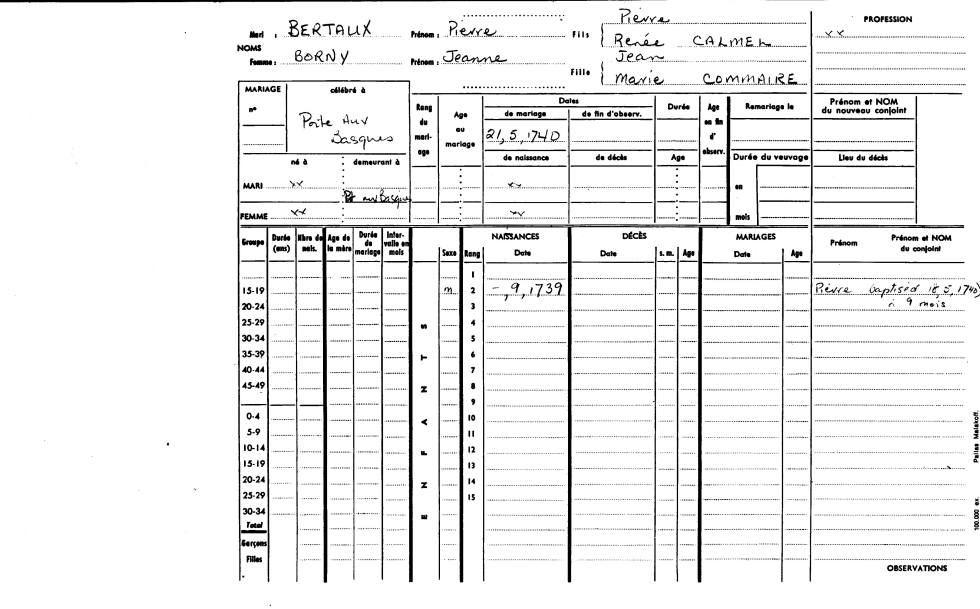 Pierre
PROFESSION
Mari : BERTAUX Prénom : Pierre Fils Renée CALMEL xx
NOMS
Jean
Femme : BORNY Prénom : Jeanne
Fille Marie COMMAIRE
MARIAGE célébré à
n° Porte Aux Basques
Rang du mariage
Age au mariage
Dates
de mariage de fin d'observ.
21, 5, 1740
Durée
Age en fin d'observ.
Remariage le
Prénom et NOM du nouveau conjoint
né à demeurant à
de naissance de décès Age
Durée du veuvage
Lieu du décès
MARI xx xx en
Pt aux Basques
FEMME xx xx mois
Groupe Durée (ans) Nbre de nais. Age de la mère Durée de mariage Intervalle en mois Sexe Rang
NAISSANCES DÉCÈS MARIAGES
Date Date s. m. Age Date Age Prénom Prénom et NOM du conjoint
1
15-19 m 2 -, 9, 1739 Pierre baptisé 18, 5, 1740
à 9 mois
20-24 3
25-29 S 4
30-34 5
35-39 T 6
40-44 7
45-49 N 8
9
0-4 A 10
5-9 11
10-14 F 12
15-19 13
20-24 N 14
25-29 15
30-34 E
Total
Garçons
Filles
OBSERVATIONS
100.000 ex. Pallas Malakoff.